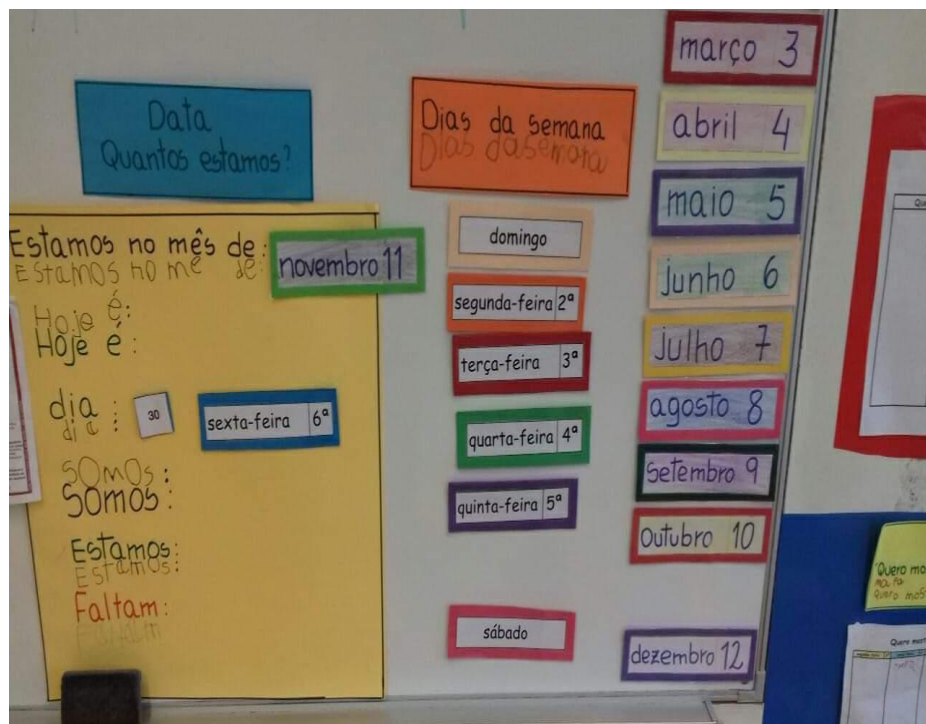 Data
Quantos estamos?
Estamos no mês de:
Estamos no me de:
novembro 11
Hoje é:
Hoje é:
dia :
di a :
30
sexta-feira 6ª
somos:
somos:
Estamos:
Estamos:
Faltam:
Dias da semana
Dias da semana
domingo
segunda-feira 2ª
terça-feira 3ª
quarta-feira 4ª
quinta-feira 5ª
sábado
março 3
abril 4
maio 5
junho 6
julho 7
agosto 8
setembro 9
outubro 10
dezembro 12
Quero mo
quero mos
Quero most